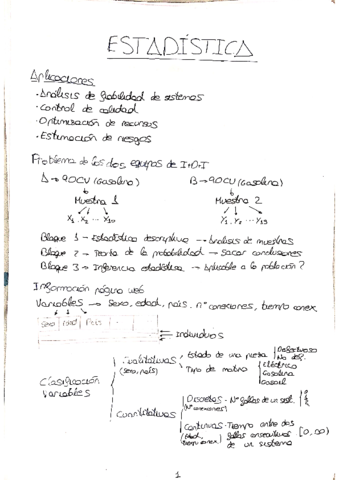 ESTADÍSTICA
Aplicaciones
· Análisis de fiabilidad de sistemas
· Control de calidad
· Optimización de recursos
· Estimación de riesgos
Problema de los dos equipos de I+D+I
A → 90CV (Gasolina) B → 90CV (Gasolina)
Muestra 1 Muestra 2
X₁ X₂ ... X₁₀ Y₁ Y₂ ...
Bloque 1 - Estadística descriptiva → Análisis de muestras
Bloque 2 - Teoría de la probabilidad → Sacar conclusiones
Bloque 3 - Inferencia estadística → Aplicable a la población?
Información página web
Variables → Sexo, edad, país, nº conexiones, tiempo conex.
Sexo Edad País ...
Individuos
Clasificación Variables
Cualitativas (sexo, país)
Estado de una pieza Defectuoso No def.
Tipo de motor Eléctrico Gasolina Gasoil
Cuantitativas
Discretas - Nº fallos de un sist. (nº conexiones)
Continuas - Tiempo entre dos fallos consecutivos de un sistema [0, ∞)
1